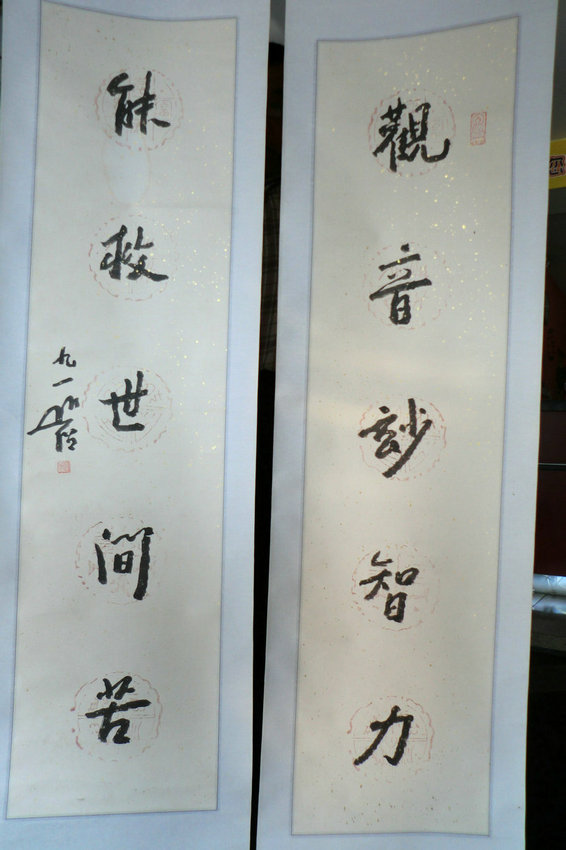 觀音玅智力
能救世間苦
九一